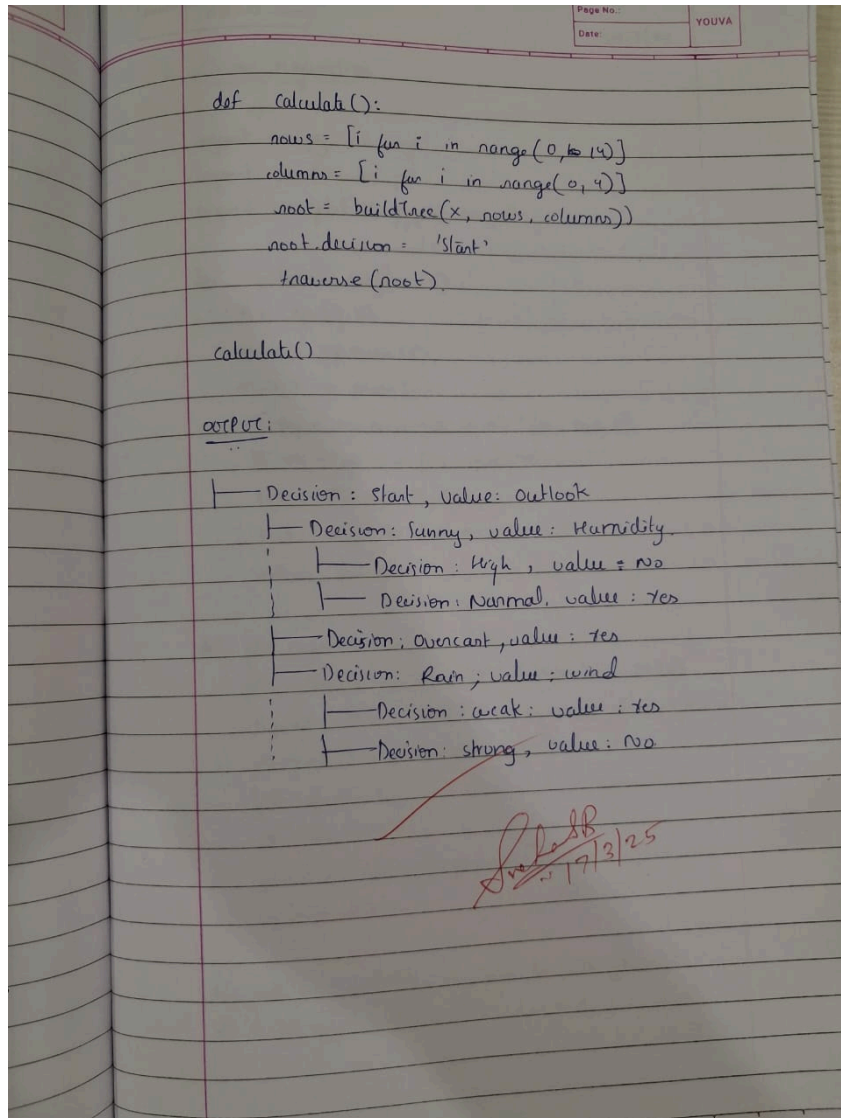 Page No.:
YOUVA
Date:
def calculate():
rows = [i for i in range(0, 14)]
columns = [i for i in range(0, 4)]
root = buildTree(x, rows, columns))
root.decision = 'Start'
traverse(root)
calculate()
OUTPUT:
Decision : Start, value: Outlook
Decision: Sunny, value: Humidity
Decision : High, value = No
Decision : Normal. value : Yes
Decision; Overcast, value: Yes
Decision: Rain; value; wind
Decision : weak; value: Yes
Decision: strong, value: No
17/3/25